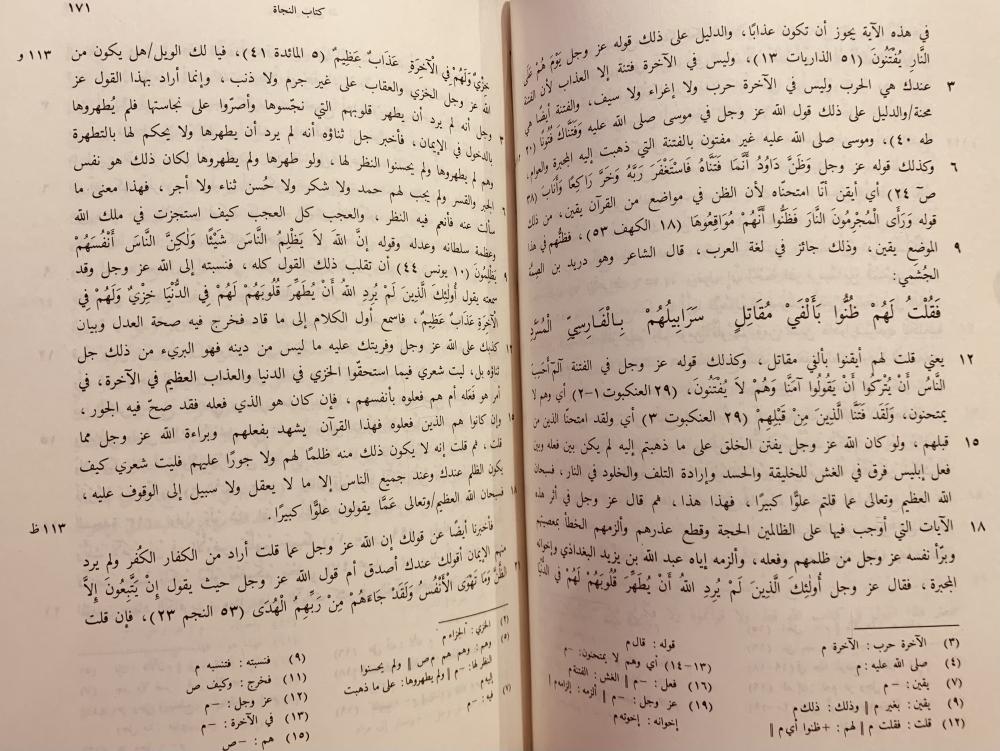 في هذه الآية يجوز أن تكون عذابًا، والدليل على ذلك قوله عز وجل يَوْمَ هُمْ عَلَى
النَّارِ يُفْتَنُونَ (٥١ الذاريات ١٣)، وليس في الآخرة فتنة إلا العذاب لأن الفتنة
٣ عندك هي الحرب وليس في الآخرة حرب ولا إغراء ولا سيف، والفتنة أيضًا هي
محنة/والدليل على ذلك قول الله عز وجل في موسى صلى الله عليه وَفَتَنَّاكَ فُتُونًا (٢٠
طه ٤٠)، وموسى صلى الله عليه غير مفتون بالفتنة التي ذهبت إليه المجبرة والعوام،
٦ وكذلك قوله عز وجل وَظَنَّ دَاوُدُ أَنَّمَا فَتَنَّاهُ فَاسْتَغْفَرَ رَبَّهُ وَخَرَّ رَاكِعًا وَأَنَابَ (٣٨
صۤ ٢٤) أي أيقن أنّا امتحنّاه لأن الظن في مواضع من القرآن يقين، من ذلك
قوله وَرَأَى الْمُجْرِمُونَ النَّارَ فَظَنُّوا أَنَّهُمْ مُوَاقِعُوهَا (١٨ الكهف ٥٣)، فظنّهم في هذا
٩ الموضع يقين، وذلك جائز في لغة العرب، قال الشاعر وهو دريد بن الصمّة
الجُشَمي:
فَقُلْتُ لَهُمْ ظُنُّوا بِأَلْفَيْ مُقَاتِلٍ سَرَابِيلُهُمْ بِالْفَارِسِيِّ الْمُسَرَّدِ
١٢ يعني قلت لهم أيقنوا بألفي مقاتل، وكذلك قوله عز وجل في الفتنة آلۤمۤ أَحَسِبَ
النَّاسُ أَنْ يُتْرَكُوا أَنْ يَقُولُوا آمَنَّا وَهُمْ لاَ يُفْتَنُونَ، (٢٩ العنكبوت ١-٢) أي وهم لا
يمتحنون، وَلَقَد فَتَنَّا الَّذِينَ مِنْ قَبْلِهِمْ (٢٩ العنكبوت ٣) أي ولقد امتحنّا الذين من
١٥ قبلهم، ولو كان الله عز وجل يفتن الخلق على ما ذهبتم إليه لم يكن بين فعله وبين
فعل إبليس فرق في الغش للخليقة والحسد وإرادة التلف والخلود في النار، فسبحان
الله العظيم وتعالى عما قلتم علوًّا كبيرًا، فهذا هذا، ثم قال عز وجل في أثر هذه
١٨ الآيات التي أوجب فيها على الظالمين الحجة وقطع عذرهم وألزمهم الخطأ بمعصيتهم
وبرّأ نفسه عز وجل من ظلمهم وفعله، وألزمه إياه عبد الله بن يزيد البغدادي وإخوانه
المجبرة، فقال عز وجل أُولَئِكَ الَّذِينَ لَمْ يُرِدِ اللهُ أَنْ يُطَهِّرَ قُلُوبَهُمْ لَهُمْ فِي الدُّنْيَا
(٣) الآخرة حرب: الآخرة م
(٤) صلى الله عليه: م
(٧) يقين: -م
(٩) يقين: بغير م || وذلك: ذلك م
(١٢) قلت: فقلت م || لهم: +ظنوا أي م ||
قوله: قال م
(١٣-١٤) أي وهم لا يمتحنون: -م
(١٦) فعل: -م || الغش: الفتنة م
(١٩) عز وجل: -م || ألزمه: إلزامه م ||
إخوانه: إخوته م
كتاب النجاة ١٧١
خِزْيٌ وَلَهُمْ فِي الْآخِرَةِ عَذَابٌ عَظِيمٌ (٥ المائدة ٤١)، فيا لك الويل/هل يكون من ١١٣ و
الله عز وجل الخزي والعقاب على غير جرم ولا ذنب، وإنما أراد بهذا القول عز
وجل أنه لم يرد أن يطهر قلوبهم التي نجّسوها وأصرّوا على نجاستها فلم يُطهروها
٣ بالدخول في الإيمان، فأخبر جل ثناؤه أنه لم يرد أن يطهرها ولا يحكم لها بالتطهرة
وهم لم يطهروها ولم يحسنوا النظر لها، ولو طهرها ولم يطهروها لكان ذلك هو نفس
الجبر والقسر ولم يجب لهم حمد ولا شكر ولا حُسن ثناء ولا أجر، فهذا معنى ما
٦ سألت عنه فأنعم فيه النظر، والعجب كل العجب كيف استجزت في ملك الله
وعظمة سلطانه وعدله وقوله إِنَّ اللهَ لاَ يَظْلِمُ النَّاسَ شَيْئًا وَلَكِنَّ النَّاسَ أَنْفُسَهُمْ
٩ يَظْلِمُونَ (١٠ يونس ٤٤) أن تقلب ذلك القول كله، فنسبته إلى الله عز وجل وقد
سمعته يقول أُولَئِكَ الَّذِينَ لَمْ يُرِدِ اللهُ أَنْ يُطَهِّرَ قُلُوبَهُمْ لَهُمْ فِي الدُّنْيَا خِزْيٌ وَلَهُمْ فِي
الْآخِرَةِ عَذَابٌ عَظِيمٌ، فاسمع أول الكلام إلى ما قاد فخرج فيه صحة العدل وبيان
١٢ كذبك على الله عز وجل وفريتك عليه ما ليس من دينه فهو البريء من ذلك جل
ثناؤه بل، ليت شعري فيما استحقّوا الخزي في الدنيا والعذاب العظيم في الآخرة، في
أمر هو فَعَله أم هم فعلوه بأنفسهم، فإن كان هو الذي فعله فقد صحّ فيه الجور،
١٥ وإن كانوا هم الذين فعلوه فهذا القرآن يشهد بفعلهم وبراءة الله عز وجل مما
قلت، ثم قلت إنه لا يكون ذلك منه ظلمًا لهم ولا جورًا عليهم فليت شعري كيف
يكون الظلم عندك وعند جميع الناس إلا ما لا يعقل ولا سبيل إلى الوقوف عليه،
١٨ فسبحان الله العظيم/وتعالى عَمَّا يقولون علوًّا كبيرًا. ١١٣ ظ
فأخبرنا أيضًا عن قولك إن الله عز وجل عما قلت أراد من الكفار الكُفر ولم يرد
منهم الإيمان أقولك عندك أصدق أم قول الله عز وجل حيث يقول إِنْ يَتَّبِعُونَ إِلاَّ
٢١ الظَّنَّ وَمَا تَهْوَى الْأَنْفُسُ وَلَقَدْ جَاءَهُمْ مِنْ رَبِّهِمُ الْهُدَى (٥٣ النجم ٢٣)، فإن قلت
(٢) الخزي: الجزاء م
(٥) وهم: وهم هم م ص || ولم يحسنوا
النظر لها: -م || ولم يطهروها: على ما ذهبت
إليه م
(٧) فيه: -م
(٩) فنسبته: فتنسبه م
(١١) فخرج: وكيف ص
(١٢) عز وجل: -م
(١٣) في الآخرة: -م
(١٥) هم: -ص